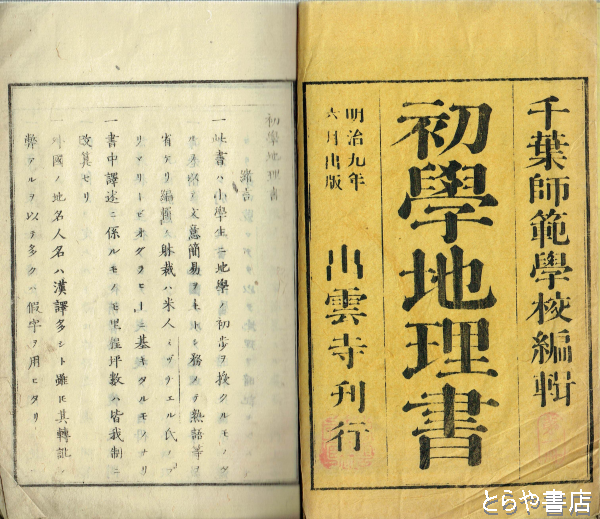 千葉師範學校編輯
初學地理書
明治九年
六月出版
出雲寺刊行
初學地理書
緒言
一此書ハ小學生ニ地學ノ初歩ヲ授クルモノ
文意簡易ヲ務メテ熟語等ヲ
省ケリ編圖ノ躰裁ハ米人ミッヴェル氏ノプ
リマリーゼオグラヒーニ基キタルモノナリ
一書中譯述ニ係ルモノモ里程坪數ハ皆我制ニ
改算セリ
一外國ノ地名人名ハ漢譯多シト雖𪜈其轉訛ノ
弊アルヲ以テ多クハ假字ヲ用ヒタリ
とらや書店